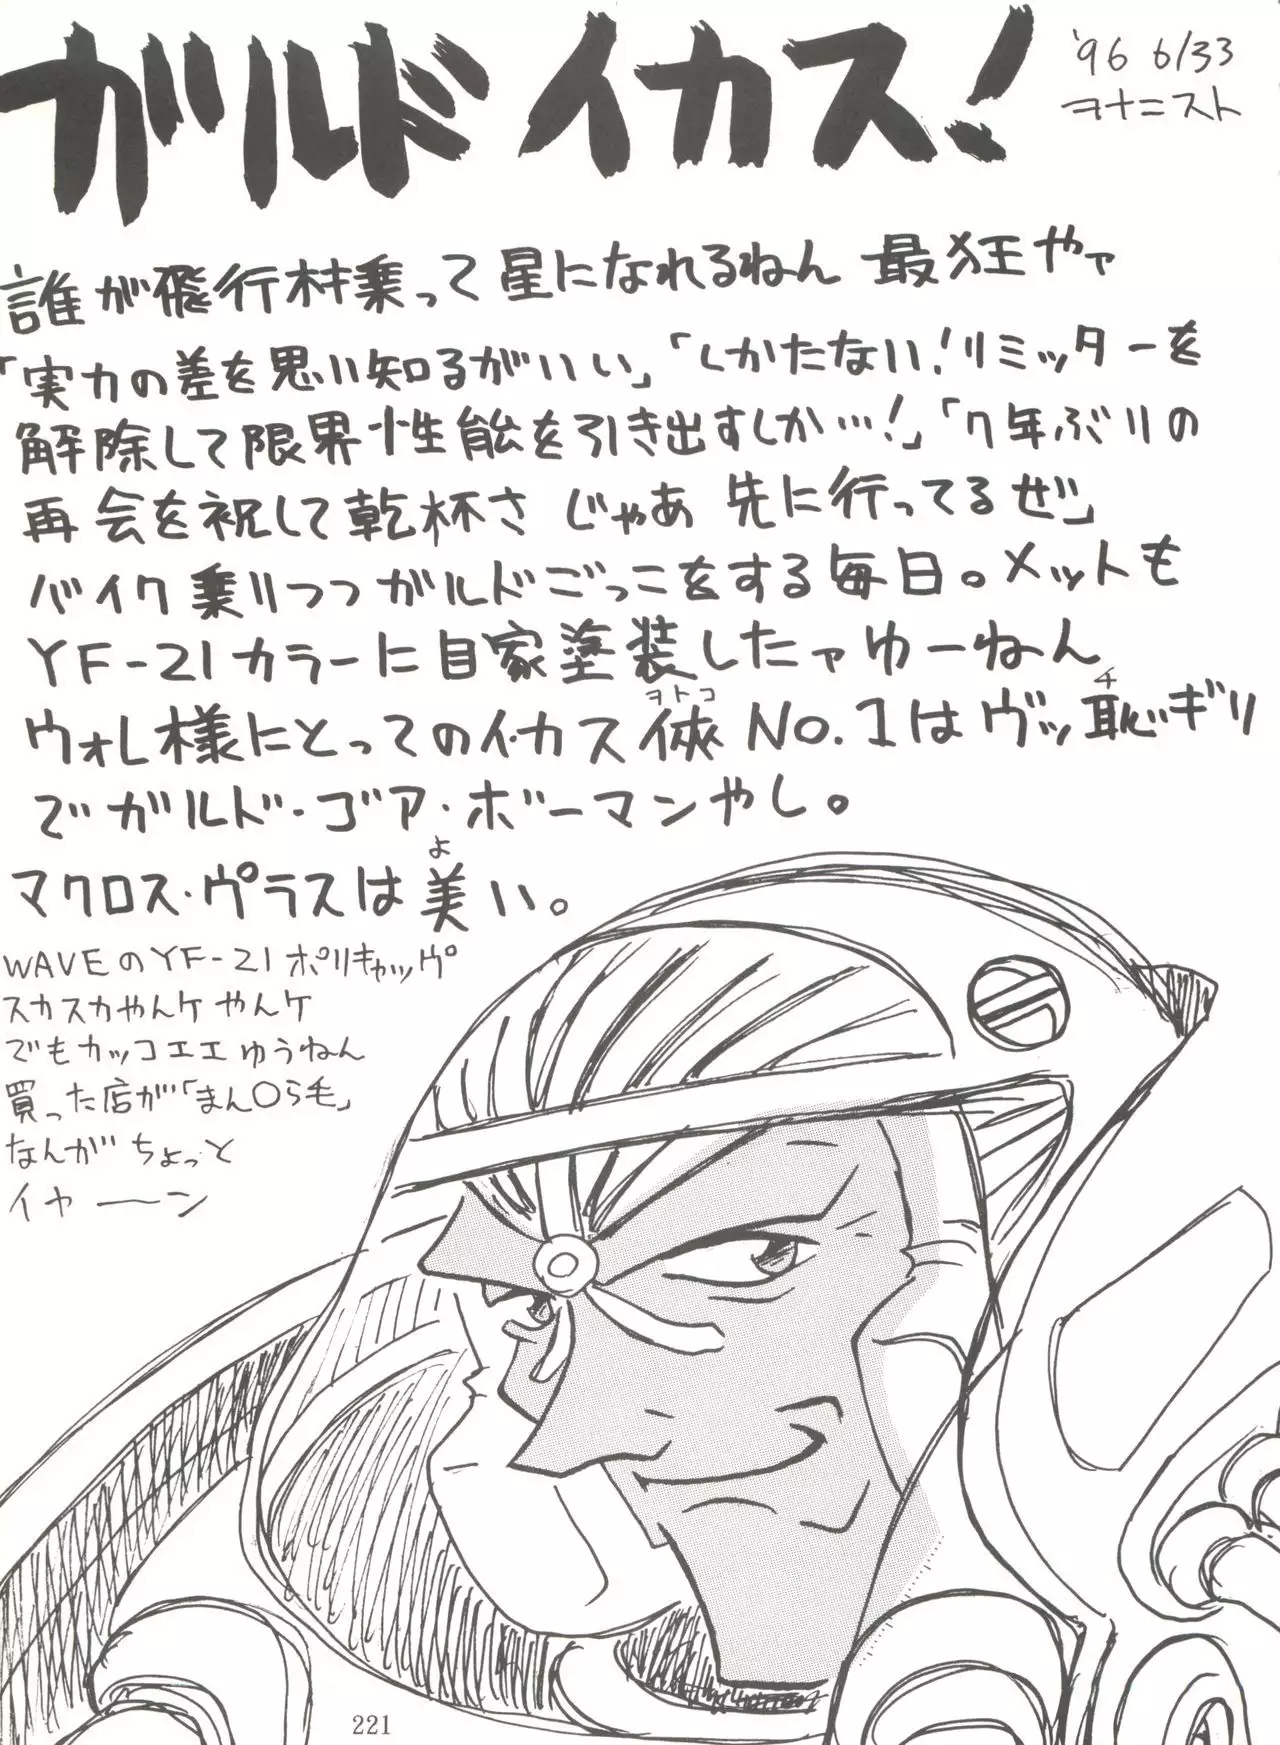 ガルド イカス!
'96 6/33
ヲナニスト
誰が飛行材乗って星になれるねん 最狂やァ
「実力の差を思い知るがいい」「しかたない!リミッターを
解除して限界性能を引き出すしか…!」「7年ぶりの
再会を祝して乾杯さ じゃあ 先に行ってるぜ」
バイク乗りつつガルドごっこをする毎日。メットも
YF-21カラーに自家塗装したャゅーねん
ヲトコ チ
ウォレ様にとってのイカス俠 No.1はヴッ恥ギリ
でガルド・ゴア・ボーマンやし。
よ
マクロス・プラスは美い。
WAVEのYF-21 ポリキャップ
スカスカやんケ やんケ
でもカッコエエ ゆうねん
買った店が「まん〇ら毛」
なんが ちょっと
イヤーン
221